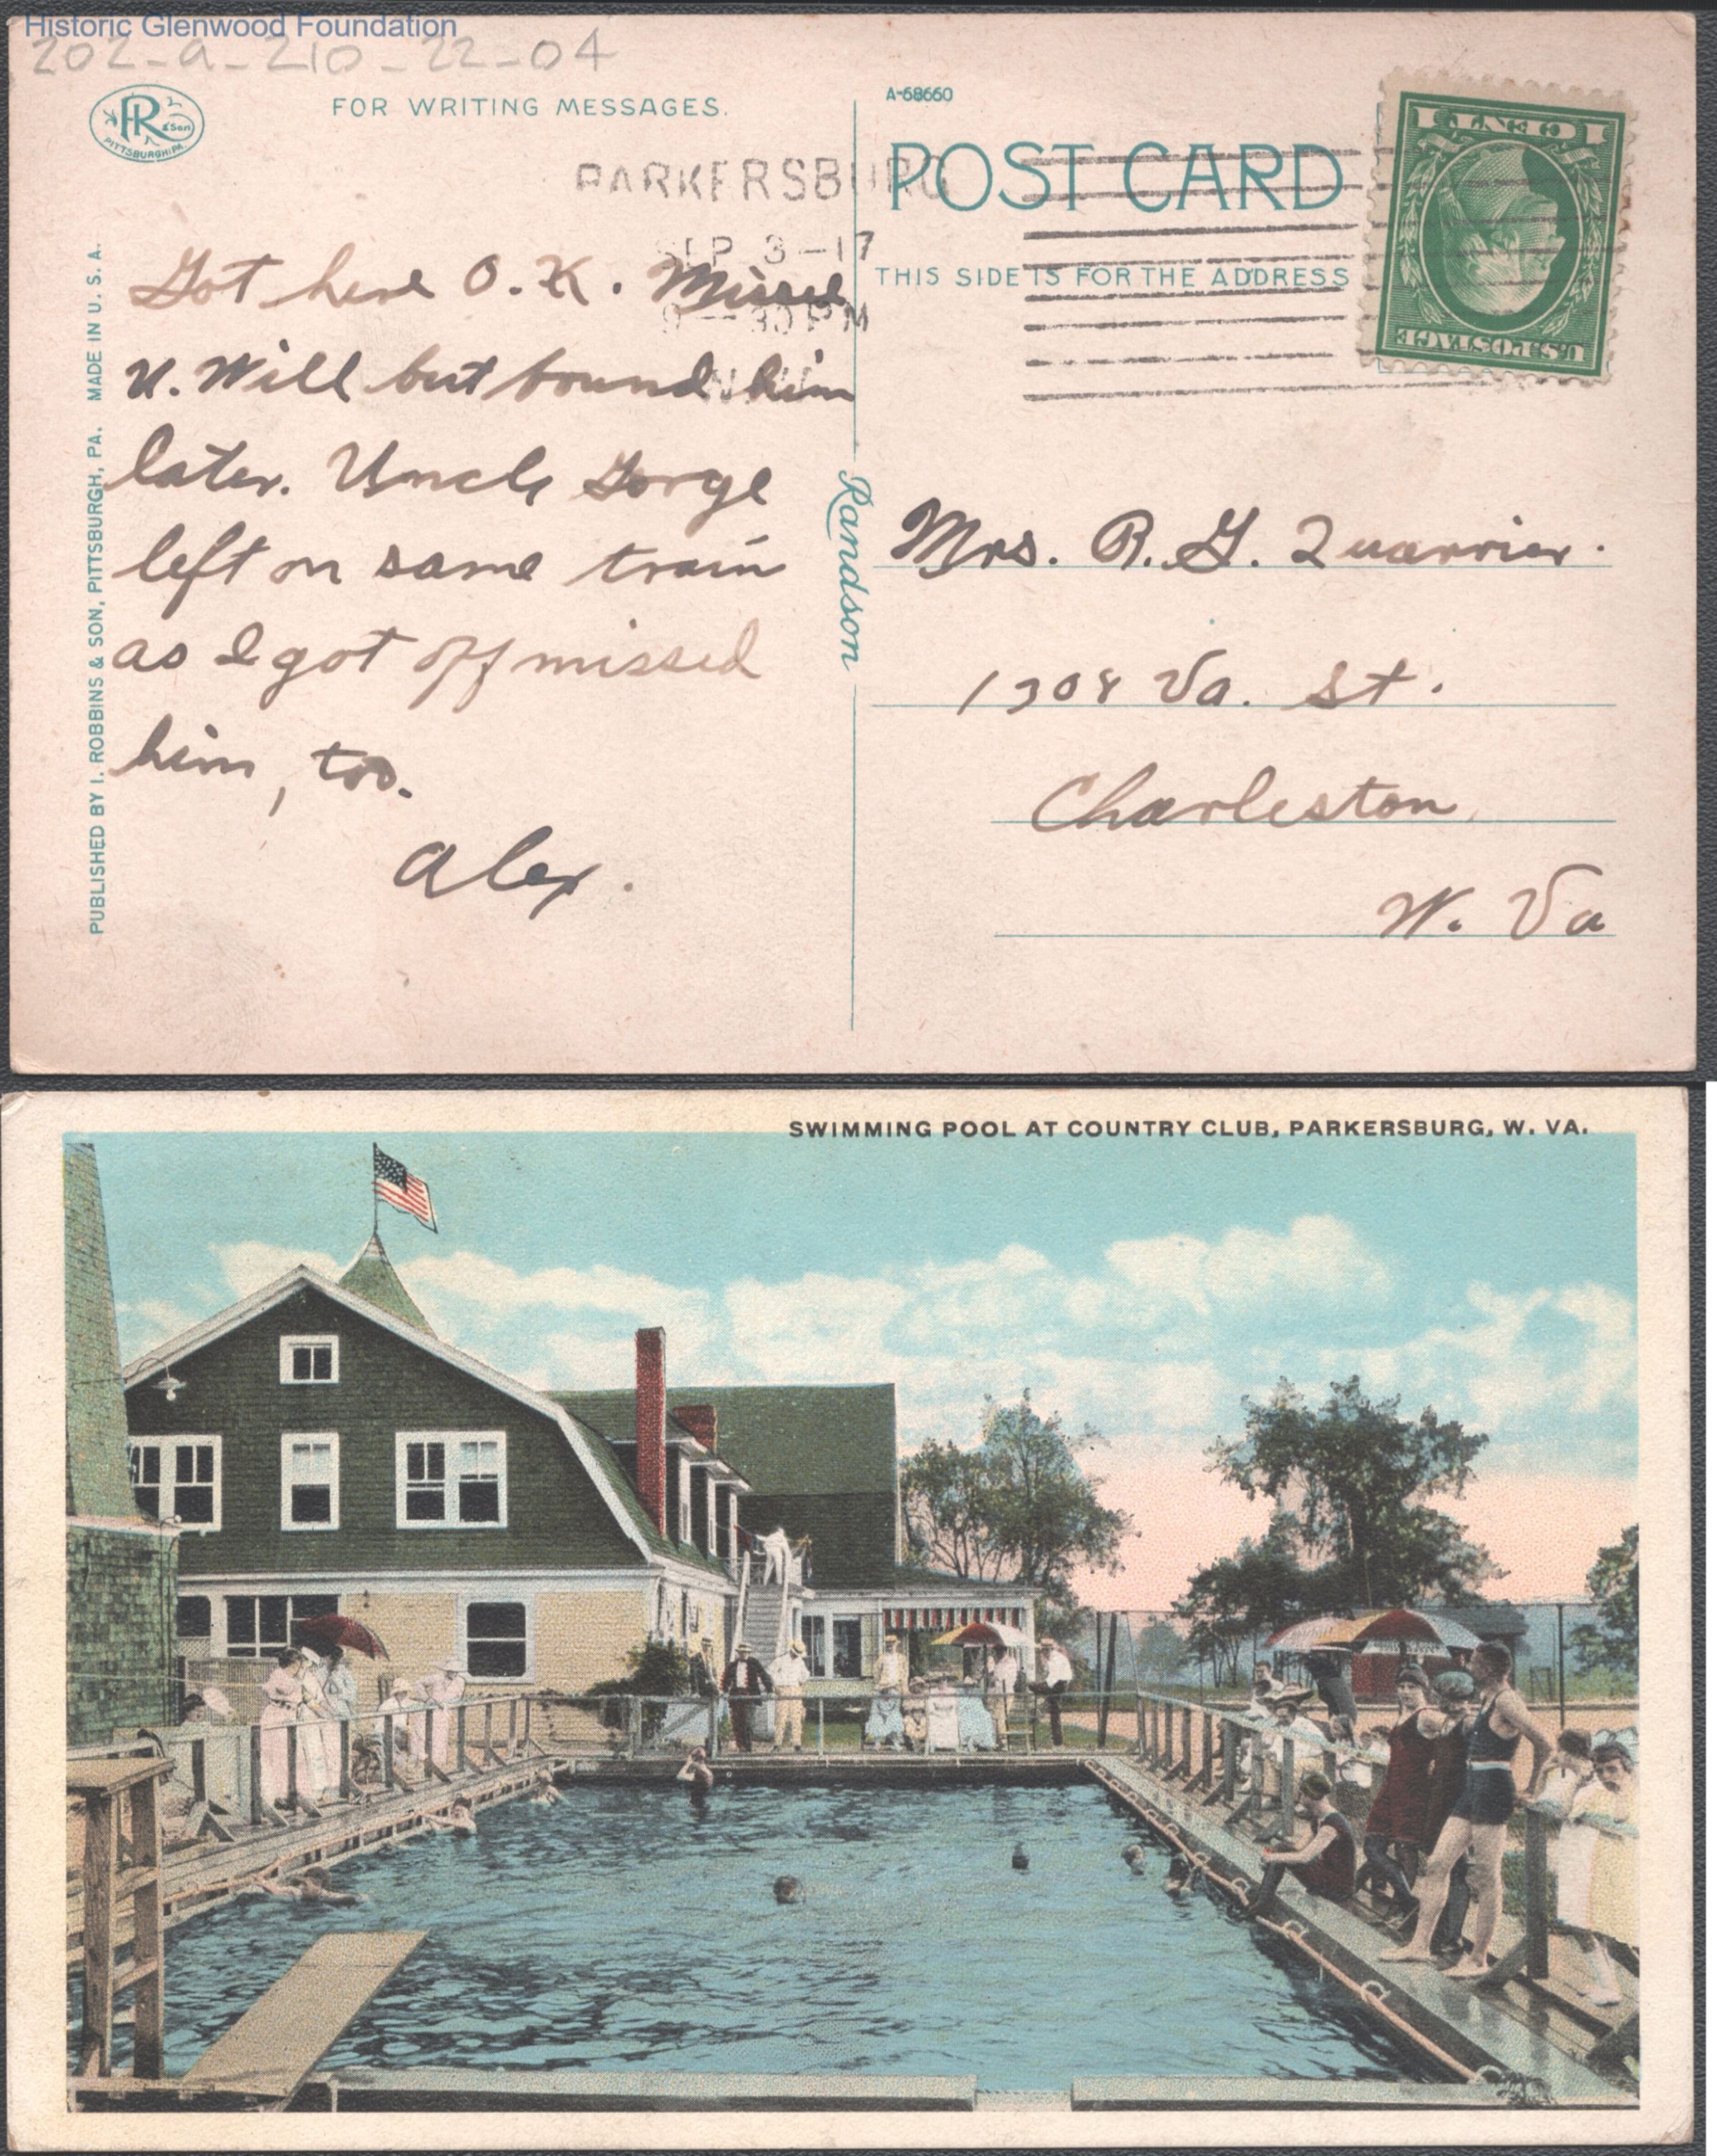 Historic Glenwood Foundation
202-a-210-22-04
PR & Son
PITTSBURGH, PA.
FOR WRITING MESSAGES.
A-68660
POST CARD
THIS SIDE IS FOR THE ADDRESS
1 CENT 1
U.S. POSTAGE
PARKERSBURG
SEP 3-17
9-30 PM
W.V.
Got here O.K. Missed
U. Will but found him
later. Uncle Gorge
left on same train
as I got off missed
him, too.
Alex.
PUBLISHED BY I. ROBBINS & SON, PITTSBURGH, PA. MADE IN U.S.A.
Randson
Mrs. R. G. Quarrier.
1308 Va. St.
Charleston,
W. Va
SWIMMING POOL AT COUNTRY CLUB, PARKERSBURG, W. VA.